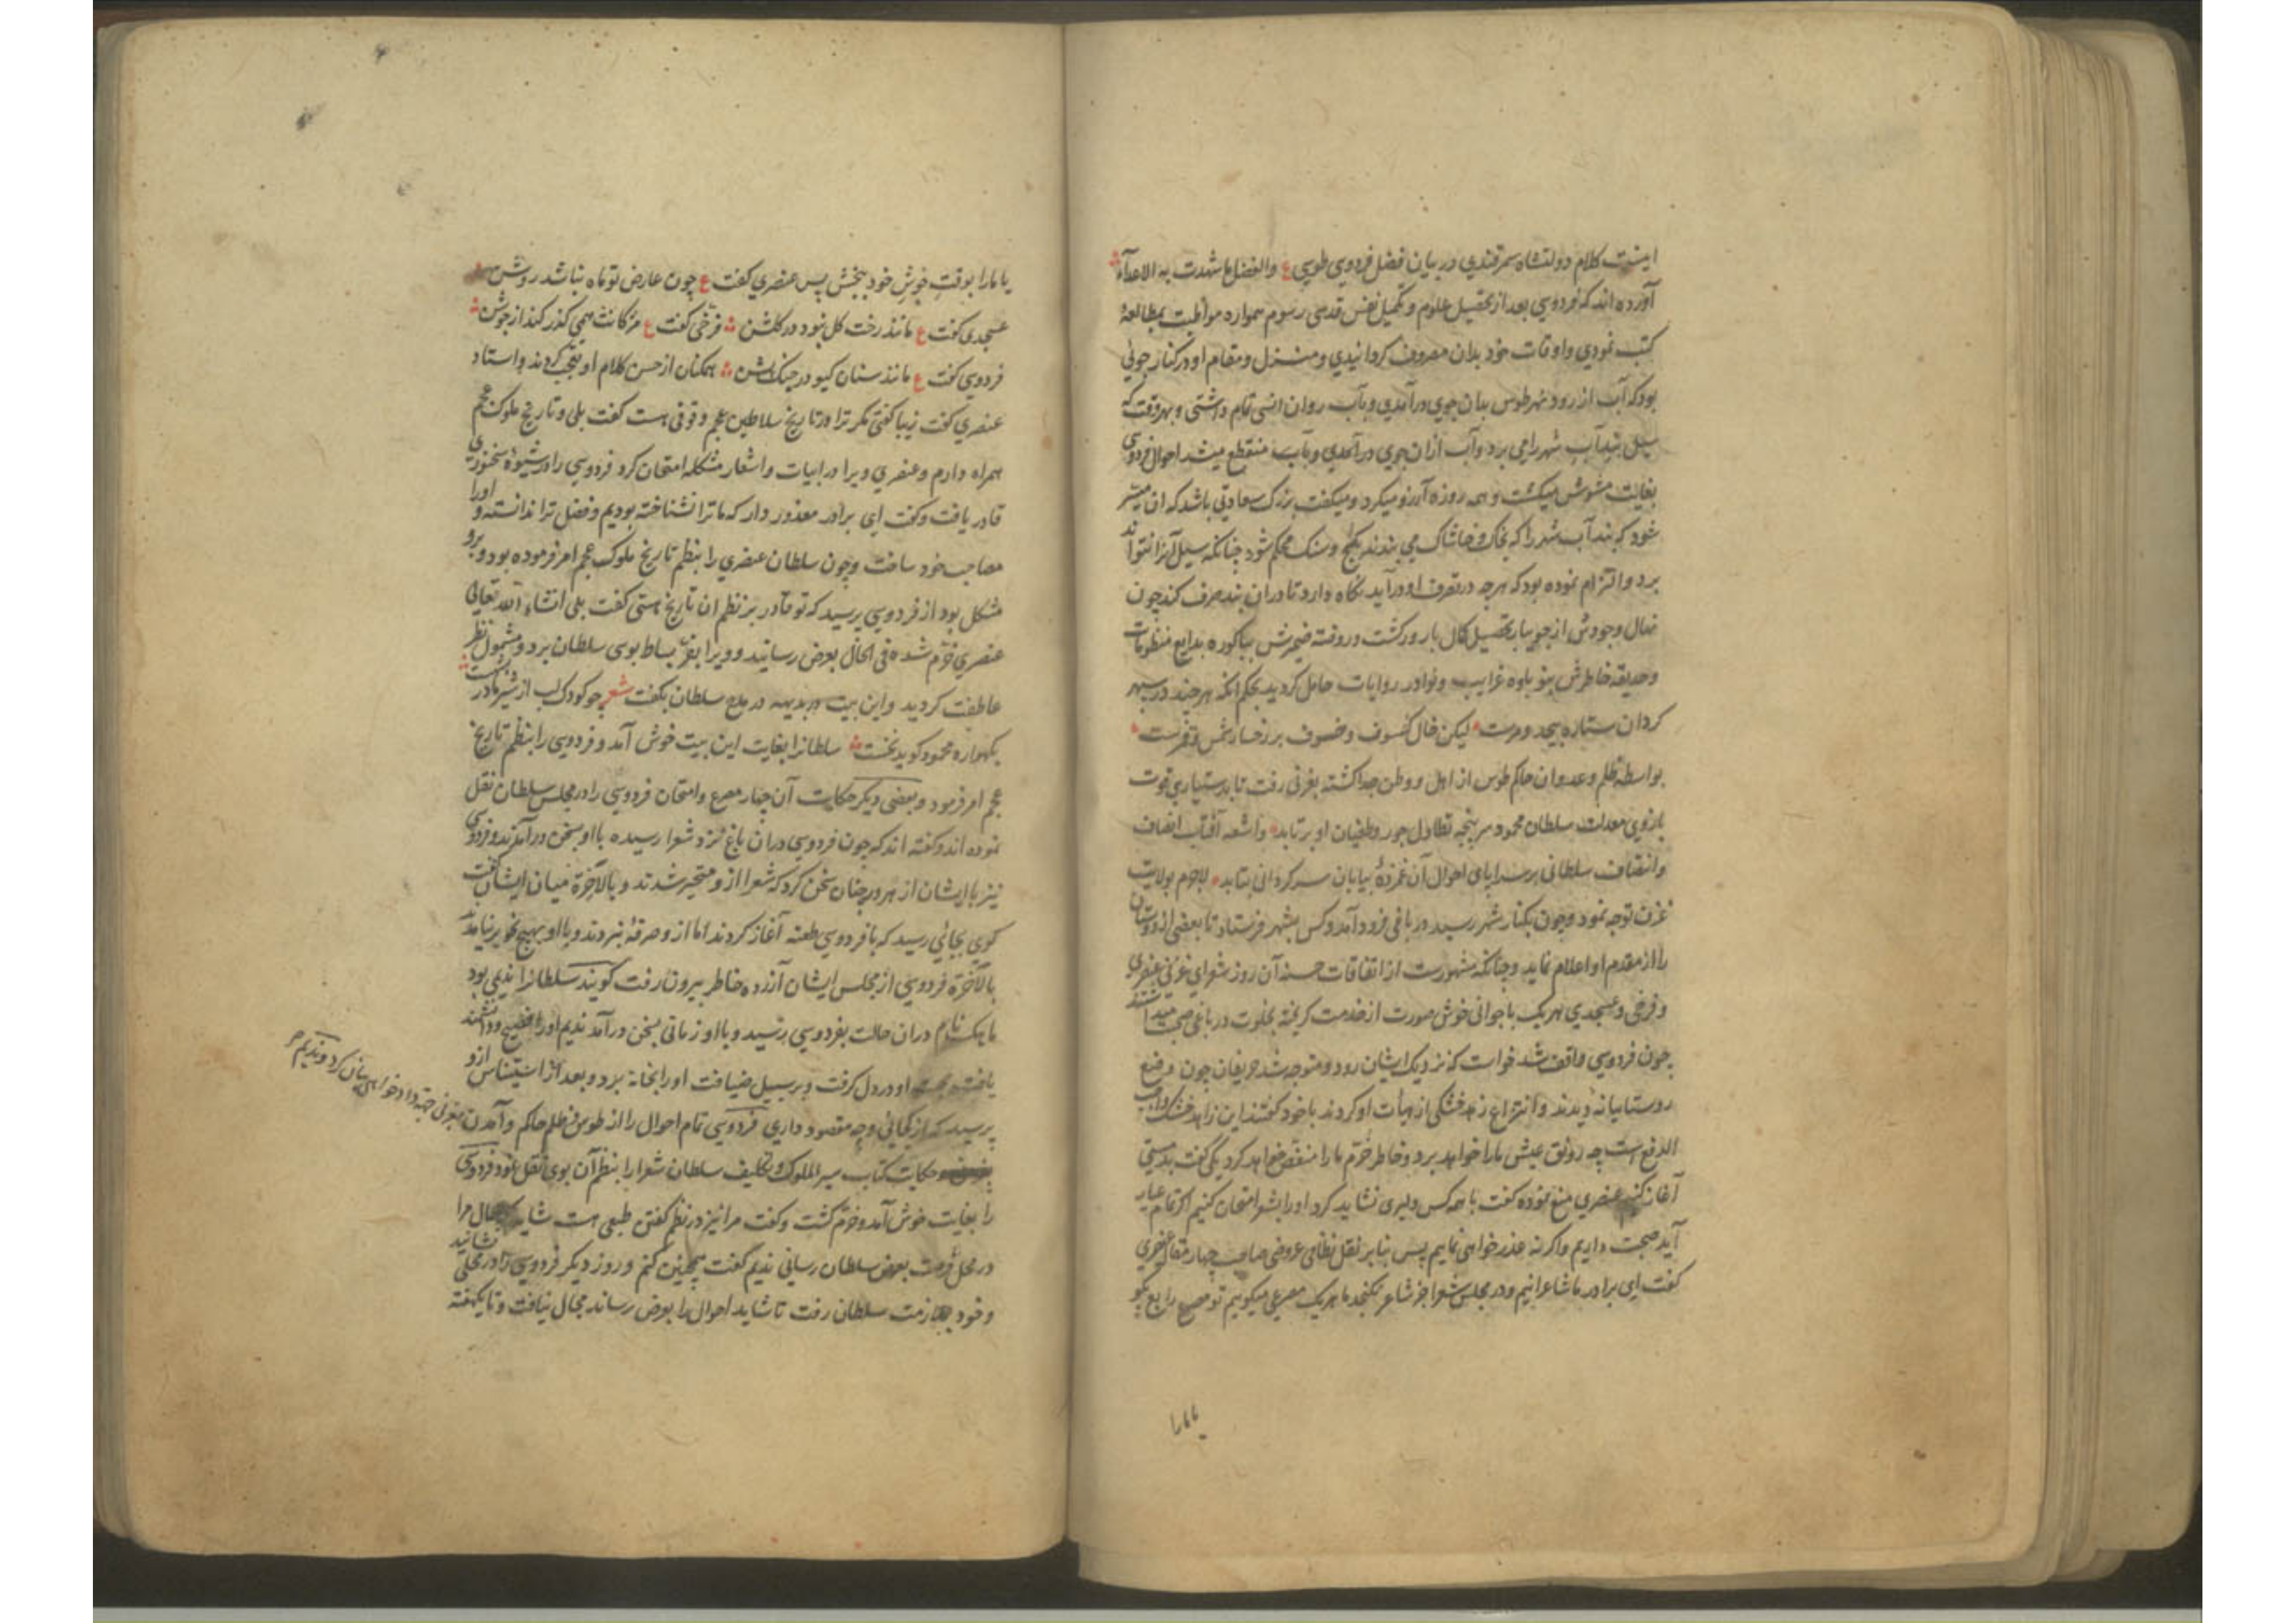 اینست کلام دولتشاه سمرقندی در بیان فضل فردوسی طوسی ع والفضل ما شهدت به الاعداء
آورده اند که فردوسی بعد از تحصیل علوم و تکمیل نفس قدسی رسوم همواره مواظبت بمطالعهٔ
کتب نمودی و اوقات خود بدان مصروف کردانیدی و منزل و مقام او در کنار جوئی
بود که آب از رود شهر طوس بدان جوی در آمدی و بآب روان انسی تمام داشتی و بهر وقت که
سیل بند آب شهر را می برد و آب ازان جوی در آمدی و بآب منقطع میشد احوال فردوسی
بغایت مشوش میکشت و همه روزه آرزو میکرد و میکفت بزرک سعادتی باشد که ان میسر
شود که بند آب شهر را که بخاک و خاشاک می بندند بکچ و سنک محکم شود چنانکه سیل آنرا نتواند
برد و التزام نموده بود که هرچه در تصرف او در آید نکاه دارد تا دران بند صرف کند چون
نهال وجودش از جویبار تحصیل کمال بارور کشت و روضه ضمیرش بباکوره بدایع منظومات
و حدیقه خاطرش بنوباوه غرایب و نوادر روایات حامل کردید بحکم انکه هرچند در سپهر
کردان ستاره بیحد و مرست لیکن خال کسوف و خسوف بر رخسار شمس و قمرست
بواسطه ظلم و عدوان حاکم طوس از اهل و وطن جدا کشته بغزنی رفت تا بدستیاری قوت
بازوی معدلت سلطان محمود سرپنجه تطاول جور و طغیان او بر تابد و اشعه آفتاب انصاف
و انتصاف سلطانی بر سرایای احوال آن غمزدهٔ بیابان سرکردانی بتابد لاجرم بولایت
غزن توجه نمود و چون بکنار شهر رسید در باغی فرود آمد و کس بشهر فرستاد تا بعضی از دوستان
را از مقدم او اعلام نماید و چنانکه مشهورست از اتفاقات حسنه آن روز شعرای غزنی عنصری
و فرخی و عسجدی هریک با جوانی خوش صورت از خدمت کریخته بخلوت در باغی صحبت میداشتند
چون فردوسی واقف شد خواست که نزدیک ایشان رود و متوجه شد حریفان چون وضع
روستاییانه دیدند و انتزاع زهد خشکی از هیأت او کردند با خود کفتند این زاهد خشک واجب
الدفع است چه رونق عیش ما را خواهد برد و خاطر خرم ما را منغص خواهد کرد یکی کفت بدمستی
آغاز کنیم عنصری منع نموده کفت با همه کس دلیری نشاید کرد او را بشعر امتحان کنیم اکر تمام عیار
آید صحبت داریم واکر نه عذر خواهی نماییم پس بنابر نقل نظامی عروضی صاحب چهار مقاله عنصری
کفت ای برادر ما شاعرانیم و در مجلس شعرا جز شاعر نکنجد ما هریک مصرعی میکوییم تو مصرع رابع بکو
یا ما را
یا ما را بوقت خوش خود ببخش پس عنصری کفت ع چون عارض تو ماه نباشد روشن
عسجدی کفت ع مانند رخت کل نبود در کلشن فرخی کفت ع مژکانت همی کذر کند از جوشن
فردوسی کفت ع مانند سنان کیو در جنک پشن همکنان از حسن کلام او تعجب کردند و استاد
عنصری کفت زیبا کفتی مکر ترا در تاریخ سلاطین عجم وقوفی هست کفت بلی و تاریخ ملوک عجم
همراه دارم و عنصری ویرا در ابیات و اشعار مشکله امتحان کرد فردوسی را در شیوهٔ سخنوری
قادر یافت و کفت ای برادر معذور دار که ما ترا نشناخته بودیم و فضل ترا ندانسته و او را
مصاحب خود ساخت و چون سلطان عنصری را بنظم تاریخ ملوک عجم امر فرموده بود و برو
مشکل بود از فردوسی پرسید که تو قادر بر نظم ان تاریخ هستی کفت بلی انشاء الله تعالی
عنصری خرم شده فی الحال بعرض رسانید و ویرا بعز بساط بوسی سلطان برد و مشمول نظر
عاطفت کردید و این بیت در بدیهه در مدح سلطان بکفت شعر چو کودک لب از شیر مادر بشست
بکهواره محمود کوید نخست سلطانرا بغایت این بیت خوش آمد و فردوسی را بنظم تاریخ
عجم امر فرمود و بعضی دیکر حکایت آن چهار مصرع و امتحان فردوسی را در مجلس سلطان نقل
نموده اند و کفته اند که چون فردوسی دران باغ نزد شعرا رسیده با او بسخن در آمدند و فردوسی
نیز با ایشان از هر در چنان سخن کرد که شعرا ازو متحیر شدند و بالآخرة میان ایشان کفت
کوی بجائی رسید که با فردوسی طعنه آغاز کردند اما ازو صرفهٔ نبردند و با او بهیچ نحو بر نیامدند
بالآخرة فردوسی از مجلس ایشان آزرده خاطر بیرون رفت کویند سلطانرا ندیمی بود
ماهک نام دران حالت بفردوسی رسید و با او زمانی بسخن در آمد ندیم او را فصیح و دانشمند
یافته محبت او در دل کرفت و بر سبیل ضیافت او را بخانه برد و بعد از استیناس ازو
پرسید که از کجائی و چه مقصود داری فردوسی تمام احوال را از طوس و ظلم حاکم و آمدن
بغزنی جهته دادخواهی بیان کرد و ندیم
حکایت کتاب سیر الملوک و تکلیف سلطان شعرا را بنظم آن بوی نقل نمود فردوسی
را بغایت خوش آمد و خرم کشت و کفت مرا نیز در نظم کفتن طبعی هست شاید که حال مرا
در محل فرصت بعرض سلطان رسانی ندیم کفت همچنین کنم و روز دیکر فردوسی را در محلی نشانید
و خود بملازمت سلطان رفت تا شاید احوال را بعرض رساند مجال نیافت و تا یکهفته